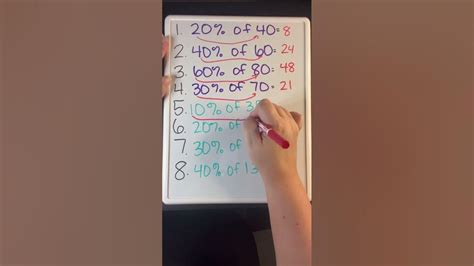 1. 20% of 40=8
2. 40% of 60=24
3. 60% of 80=48
4. 30% of 70=21
5. 10% of
6. 20% of
7. 30% of
8. 40% of